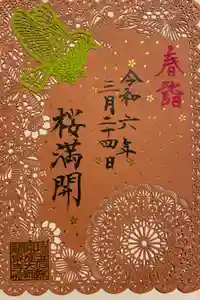 春詣
令和六年
三月二十四日
桜満開